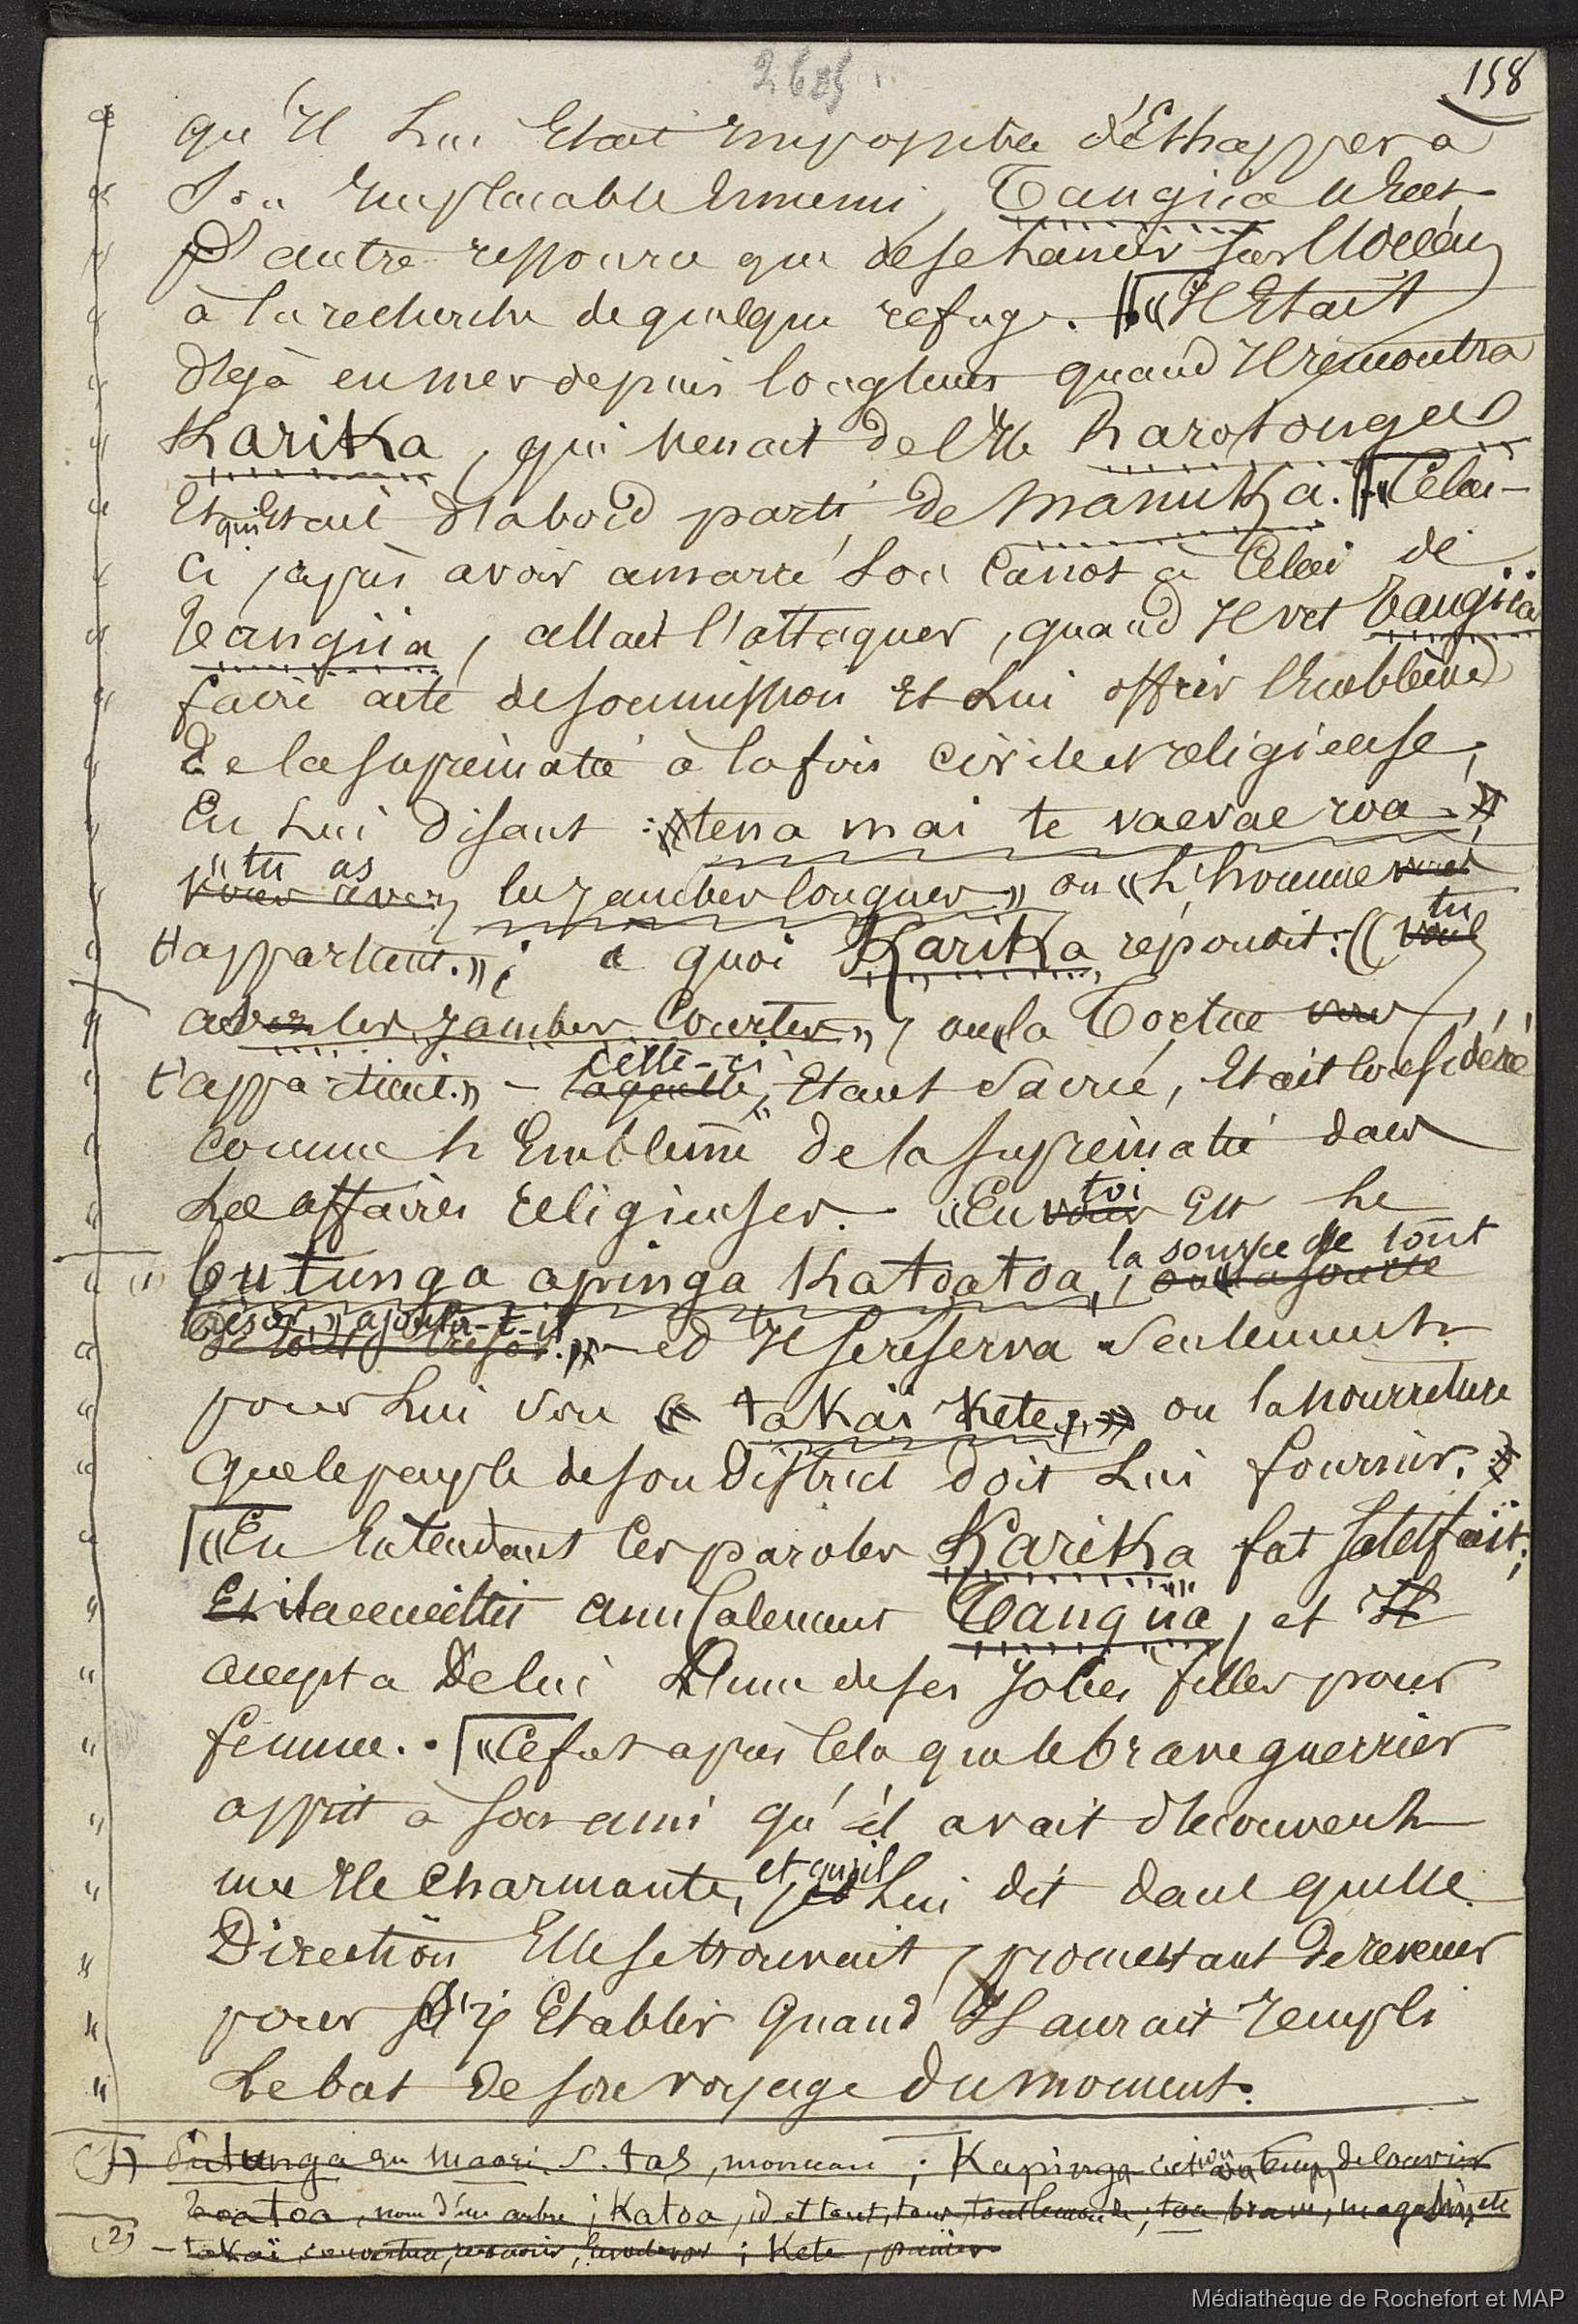 158
qu'Il Lui Etait Impossible d'Echapper à
Son Implacable Ennemi, Tangiia n'Eut
d'autre ressource que de se lancer sur l'Océan
à la recherche de quelque refuge. «Il Etait
déjà en mer depuis longtems quand Il rencontra
Karika, qui venait de l'Ile Rarotonga
Et qui Etait d'abord parti de Manuka. «Celui-
ci, après avoir amarré Son Canot à Celui de
Tangiia, allait l'attaquer, quand Il vit Tangiia
faire acte de soumission Et Lui offrir l'Emblème
De la suprématie à la fois civile et religieuse,
En Lui disant : «tena mai te vaevae roa.»
«tu as
vous avez les jambes longues» ou «L'homme vous
tu
t'appartient.»; à quoi Karika répondit: «vous
avez les jambes Courtes», ou la Tortue vous
celle-ci
t'appartient.» – laquelle, Etant Sacrée, Etait considérée
comme L'Emblème de la suprématie dans
Les affaires Religieuses. – «En vous toi Est Le
la source de tout
(1) tutunga apinga Katoatoa, ou la source
trésor», ajouta-t-il
de tout trésor.» – et Il se réserva Seulement
pour Lui Son « takaï Kete,» ou la nourriture
que le peuple de son District doit Lui fournir.»
«En Entendant Ces paroles Karika fut satisfait;
Et il accueillit amicalement Tangiia, et Il
accepta De lui L'une de ses Jolies filles pour
femme. «Ce fut après Cela que le brave guerrier
apprit à son ami qu'il avait découvert
une Ile Charmante, et qu'il Lui dit dans quelle
Direction Elle se trouvait, promettant De revenir
pour S'y Etablir Quand Il aurait rempli
Le but De son voyage du moment.
(1) Tutunga en Maori S. tas, monceau; Kapinga
toatoa, nom d'une arbre; Katoa, id et tout, tous, tout le monde; toa brave, magasin, etc
(2) – takaï, couvertue, Envelopper; Kete, panier
Médiathèque de Rochefort et MAP